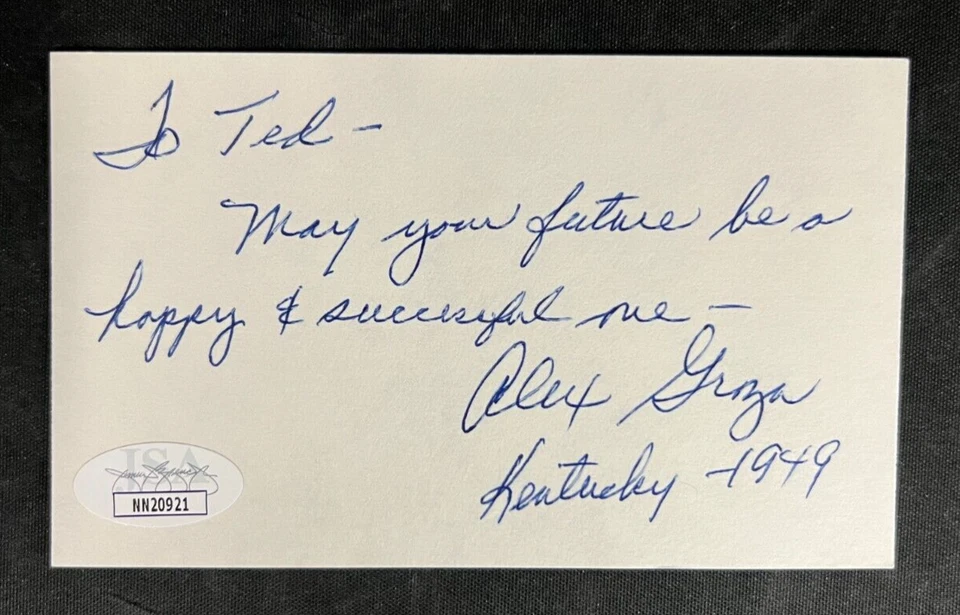 To Ted -
May your future be a
happy & successful one -
Alex Groza
Kentucky - 1949
JSA
NN20921